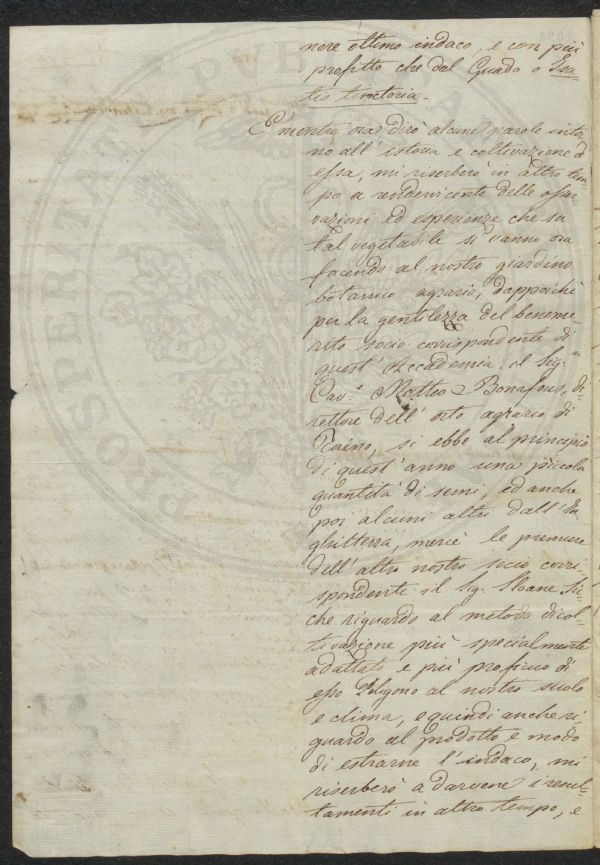 nere ottimo indaco, e con più
profitto che dal Guado o Isa-
tis tinctoria.
E mentre ora dirò alcune parole intor
no all' istoria e coltivazione d'
essa, mi riserberò in altro tem-
po a rendervi conto delle osser
vazioni ed esperienze che su
tal vegetabile si vanno ora
facendo al nostro giardino
botanico agrario, dappoichè
per la gentilezza del beneme-
rito socio corrispondente di
quest' Accademia il Sig.r
Cav.e Matteo Bonafous, di-
rettore dell' orto agrario di
Torino, si ebbe al principio
di quest' anno una piccola
quantità di semi, ed anche
poi alcuni altri dall' In
ghilterra, mercè le premure
dell' altro nostro socio corri-
spondente il Sig. Sloane. Sic-
chè riguardo al metodo di col-
tivazione più specialmente
adattato e più proficuo di
esso Poligono al nostro suolo
e clima, e quindi anche ri-
guardo al prodotto e modo
di estrarne l'indaco, mi
riserberò a darvene i resul-
tamenti in altro tempo, e
PROSPERITAS PVB